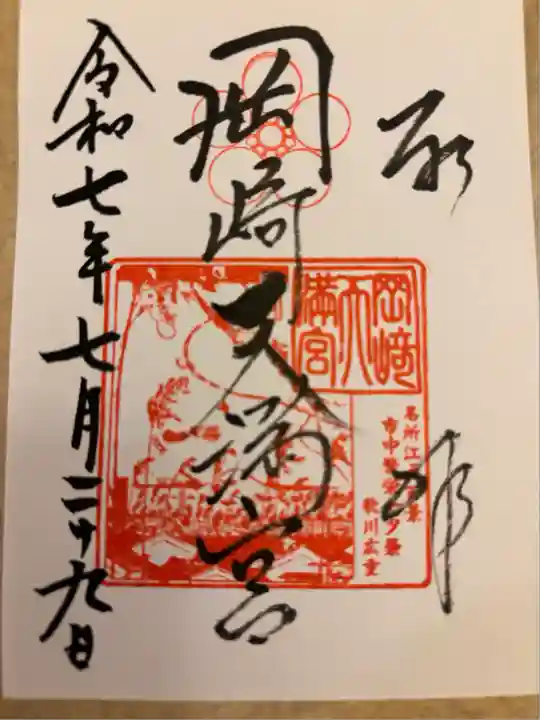 奉拝
岡崎天満宮
令和七年七月二十九日
岡崎
天
満宮
名所江戸百景
市中繁栄七夕祭
歌川広重